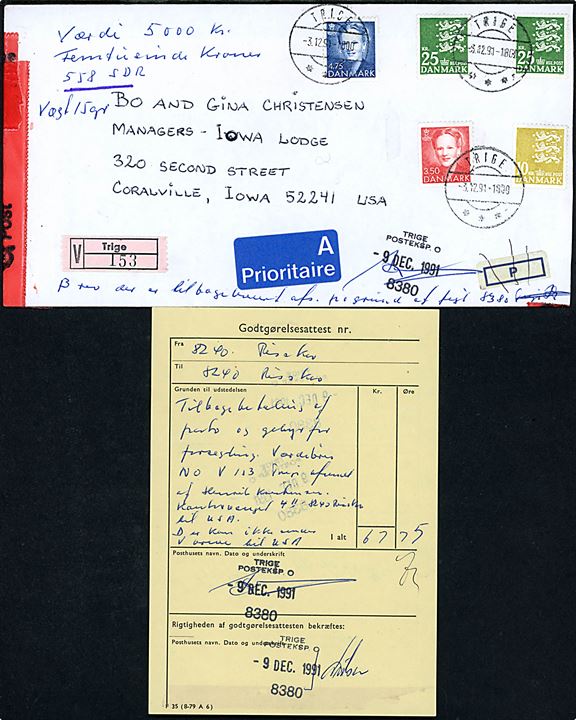 Værdi 5000 Kr.
Femtusinde Kroner
558 SDR
Vægt 15gr
TRIGE
-3.12.91-1800
4.75
DANMARK
KR. 25
DANMARK
TRIGE
-3.12.91-1800
25
DANMARK
BO AND GINA CHRISTENSEN
MANAGERS - IOWA LODGE
320 SECOND STREET
CORALVILLE, IOWA 52241 USA
3.50
DANMARK
10
DANMARK
TRIGE
-3.12.91-1800
Post
V
Trige
153
A
Prioritaire
TRIGE
POSTEKSP. O
- 9 DEC. 1991
8380
P
Brev der er tilbageleveret afs. på grund af fejl 8380
Godtgørelsesattest nr.
Fra 8240. Risskov
Til 8240 Risskov
Grunden til udstedelsen
Kr.
Øre
Tilbagebetaling af
porto og gebyr for
Værdibrev
NO V 153
af Henrik
8240 Risskov
til USA.
kan ikke
til USA
I alt 67 75
Posthusets navn. Dato og underskrift
TRIGE
POSTEKSP. O
- 9 DEC. 1991
8380
Rigtigheden af godtgørelsesattesten bekræftes:
Posthusets navn. Dato og underskrift
TRIGE
POSTEKSP. O
- 9 DEC. 1991
8380
P 35 (8-79 A 6)